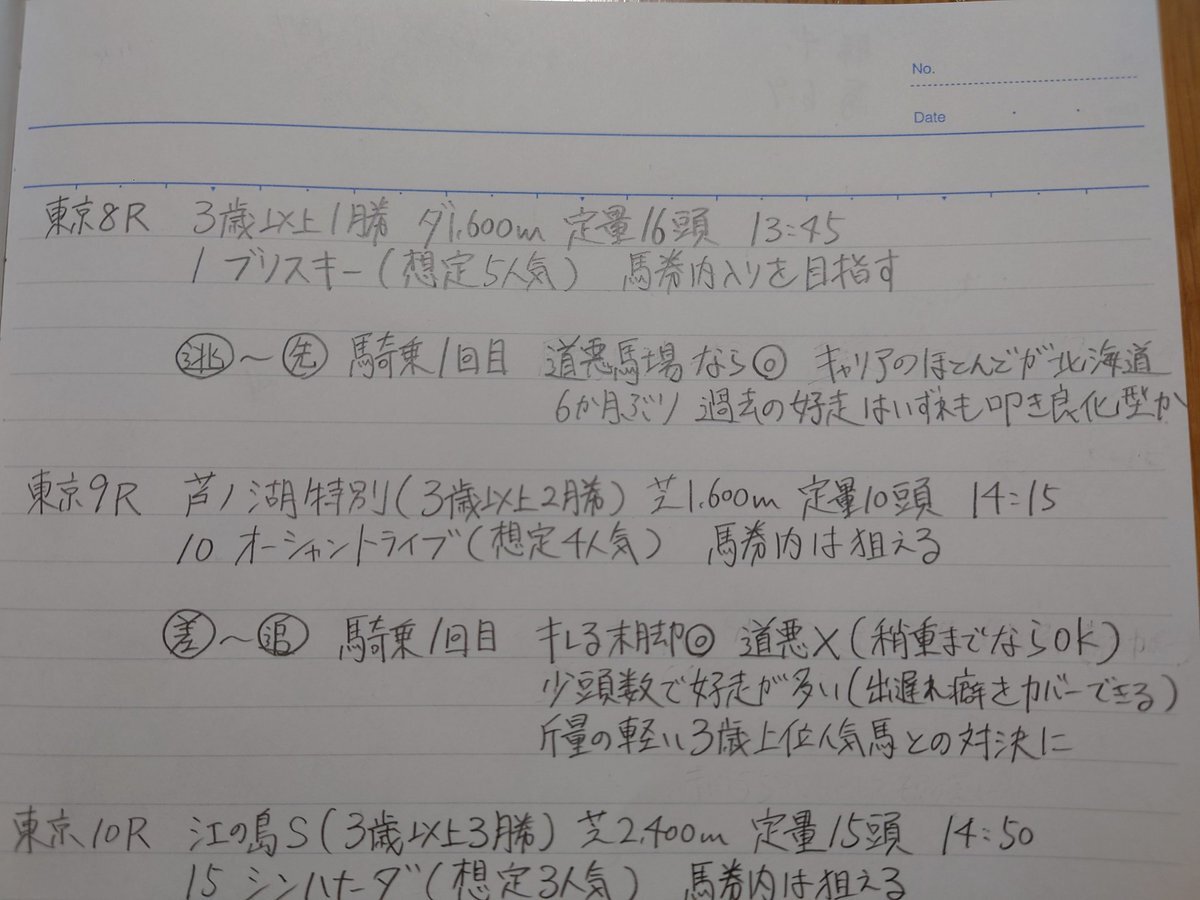 No.
Date
東京8R 3歳以上1勝 ダ1,600m 定量16頭 13:45
1 ブリスキー(想定5人気) 馬券内入りを目指す
逃~先 騎乗1回目 道悪馬場なら◎ キャリアのほとんどが北海道
6か月ぶり 過去の好走はいずれも叩き良化型か
東京9R 芦ノ湖特別(3歳以上2勝) 芝1,600m 定量10頭 14:15
10 オーシャントライブ(想定4人気) 馬券内は狙える
差~追 騎乗1回目 キレる末脚◎ 道悪×(稍重までならOK)
少頭数で好走が多い(出遅れ癖をカバーできる)
斤量の軽い3歳上位人気馬との対決に
東京10R 江の島S(3歳以上3勝) 芝2,400m 定量15頭 14:50
15 シンハナーダ(想定3人気) 馬券内は狙える